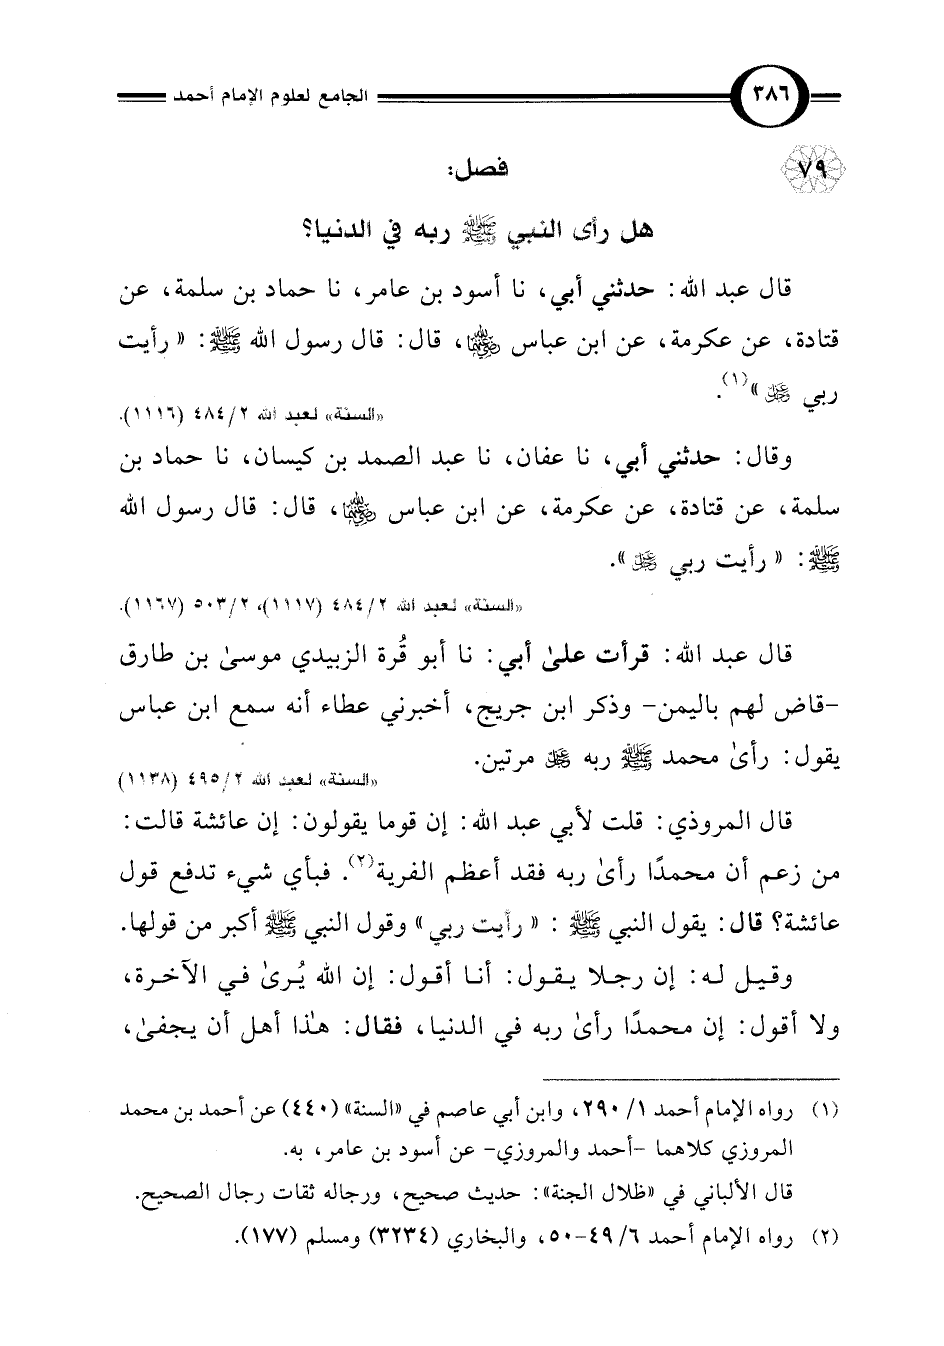 ٣٨٦ الجامع لعلوم الإمام أحمد
٧٩ فصل:
هل رأى النبي ﷺ ربه في الدنيا؟
قال عبد الله: حدثني أبي، نا أسود بن عامر، نا حماد بن سلمة، عن
قتادة، عن عكرمة، عن ابن عباس رضي الله عنهما، قال: قال رسول الله ﷺ: « رأيت
ربي عز وجل »(١).
«السنة» لعبد الله ٢/ ٤٨٤ (١١١٦).
وقال: حدثني أبي، نا عفان، نا عبد الصمد بن كيسان، نا حماد بن
سلمة، عن قتادة، عن عكرمة، عن ابن عباس رضي الله عنهما، قال: قال رسول الله
ﷺ: « رأيت ربي عز وجل ».
«السنة» لعبد الله ٢/ ٤٨٤ (١١١٧)، ٢/ ٥٠٣ (١١٦٧).
قال عبد الله: قرأت علىٰ أبي: نا أبو قُرة الزبيدي موسىٰ بن طارق
-قاض لهم باليمن- وذكر ابن جريج، أخبرني عطاء أنه سمع ابن عباس
يقول: رأىٰ محمد ﷺ ربه عز وجل مرتين.
«السنة» لعبد الله ٢/ ٤٩٥ (١١٣٨)
قال المروذي: قلت لأبي عبد الله: إن قوما يقولون: إن عائشة قالت:
من زعم أن محمدًا رأىٰ ربه فقد أعظم الفرية(٢). فبأي شيء تدفع قول
عائشة؟ قال: يقول النبي ﷺ : « رأيت ربي » وقول النبي ﷺ أكبر من قولها.
وقيل له: إن رجلا يقول: أنا أقول: إن الله يُرىٰ في الآخرة،
ولا أقول: إن محمدًا رأىٰ ربه في الدنيا، فقال: هذا أهل أن يجفىٰ،
(١) رواه الإمام أحمد ١/ ٢٩٠، وابن أبي عاصم في «السنة» (٤٤٠) عن أحمد بن محمد
المروزي كلاهما -أحمد والمروزي- عن أسود بن عامر، به.
قال الألباني في «ظلال الجنة»: حديث صحيح، ورجاله ثقات رجال الصحيح.
(٢) رواه الإمام أحمد ٦/ ٤٩-٥٠، والبخاري (٣٢٣٤) ومسلم (١٧٧).